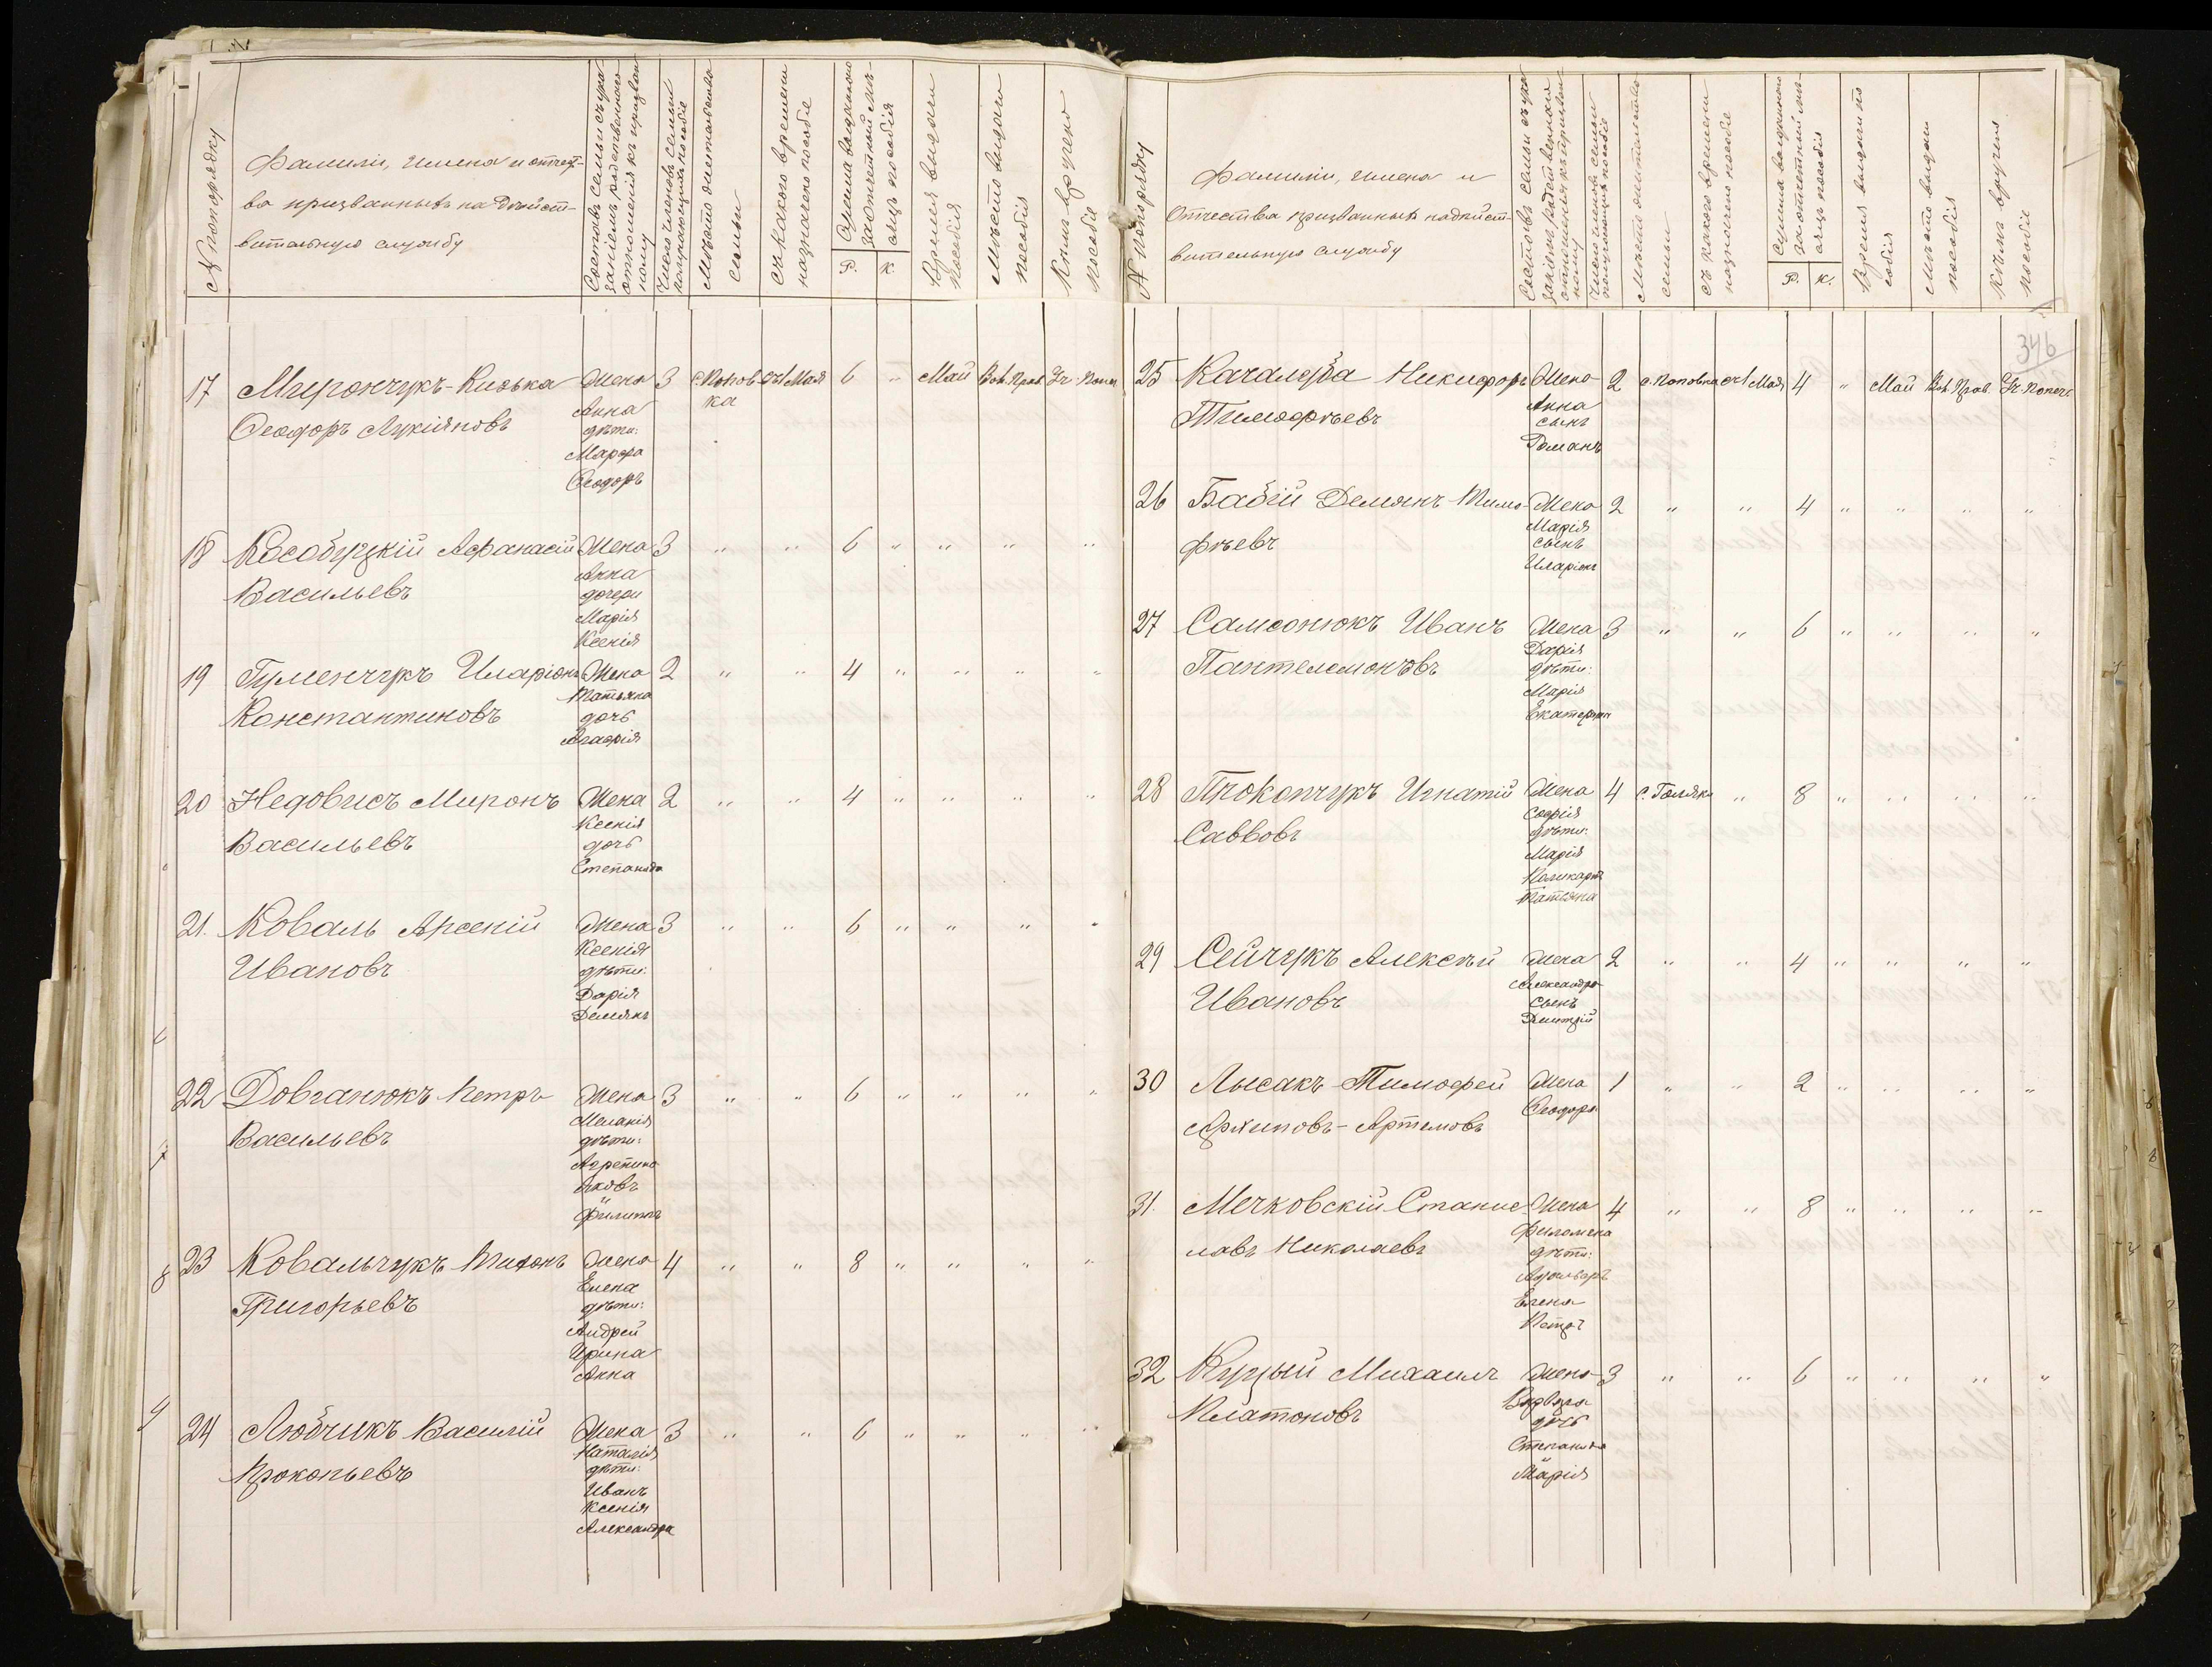 № по порядку
Фамиліи, имена и отчест-
ва призванныхъ на дѣйст-
вительную службу
Составъ семьи съ ука-
заніемъ родственнаго
отношенія къ призван
ному
Число членовъ семьи
получающихъ пособіе
Мѣсто жительства
семьи
съ какого времени
назначено пособіе
Сумма выданного
за отчетный мѣ-
сяцъ пособія
Р. К.
Время выдачи
пособія
Мѣсто выдачи
пособія
Кѣмъ вручено
пособіе
17 Мирончукъ-Кизька Жена 3 с. Попов- съ 1 Мая 6 " Май Вол. Прав.
Ѳеодоръ Лукіяновъ Анна ка
дѣти:
Марфа
Ѳеодоръ
18 Кособуцкій Афанасій Жена 3 " " 6 " " " "
Васильевъ Анна
дочери
Марія
Ксенія
19 Гуменчукъ Иларіонъ Жена 2 " " 4 " " " "
Константиновъ Татьяна
дочь
Агафія
20 Недовисъ Миронъ Жена 2 " " 4 " " " "
Васильевъ Ксенія
дочь
Степанида
21. Коваль Арсеній Жена 3 " " 6 " " " "
Ивановъ Ксенія
дѣти:
Дарія
Демянъ
22 Довганюкъ Петръ Жена 3 " " 6 " " " "
Васильевъ Меланія
дѣти:
Агрепина
Яковъ
и
Филиппъ
23 Ковальчукъ Тихонъ Жена 4 " " 8 " " " "
Григорьевъ Елена
дѣти:
Андрей
Ирина
Анна
24 Любчикъ Василій Жена 3 " " 6 " " " "
Прокопьевъ Наталія
дѣти:
Иванъ
Ксенія
Александра
№ по порядку
Фамиліи, имена и
Отчества призванныхъ на дѣйст-
вительную службу
Составъ семьи съ ука
заніемъ родственнаго
отношенія къ призван
ному
Число членовъ семьи
получающихъ пособіе
Мѣсто жительства
семьи
съ какого времени
назначено пособіе
Сумма выданного
за отчетный мѣ-
сяцъ пособія
Р. К.
Время выдачи по
собія
Мѣсто выдачи
пособія
Кѣмъ вручено
пособіе
346
25 Качалоба Никифоръ Жена 2 с. Поповка съ 1 Мая 4 " Май Вол. Прав.
Тимофѣевъ Анна
сынъ
Романъ
26 Бабій Демянъ Тимо- Жена 2 " " 4 " " " "
фѣевъ Марія
сынъ
Иларіонъ
27 Самсонюкъ Иванъ Жена 3 " " 6 " " " "
Пантелемоновъ Дарія
дѣти:
Марія
Екатерина
28 Прокопчукъ Игнатій Жена 4 с. Голяки " 8 " " " "
Саввовъ Софія
дѣти:
Марія
Поликарпъ
Татьяна
29 Сейчукъ Алексѣй Жена 2 " " 4 " " " "
Ивановъ Александра
Сынъ
Дмитрій
30 Лысакъ Тимофей Жена 1 " " 2 " " " "
Архиповъ-Артемовъ Ѳеодора
31. Мечковскій Станис- Жена 4 " " 8 " " " "
лавъ Николаевъ Филомена
дѣти:
Елена
Петръ
32 Куцый Михаилъ Жена 3 " " 6 " " " "
Платоновъ Варвара
дочь
Степанида
и
Марія